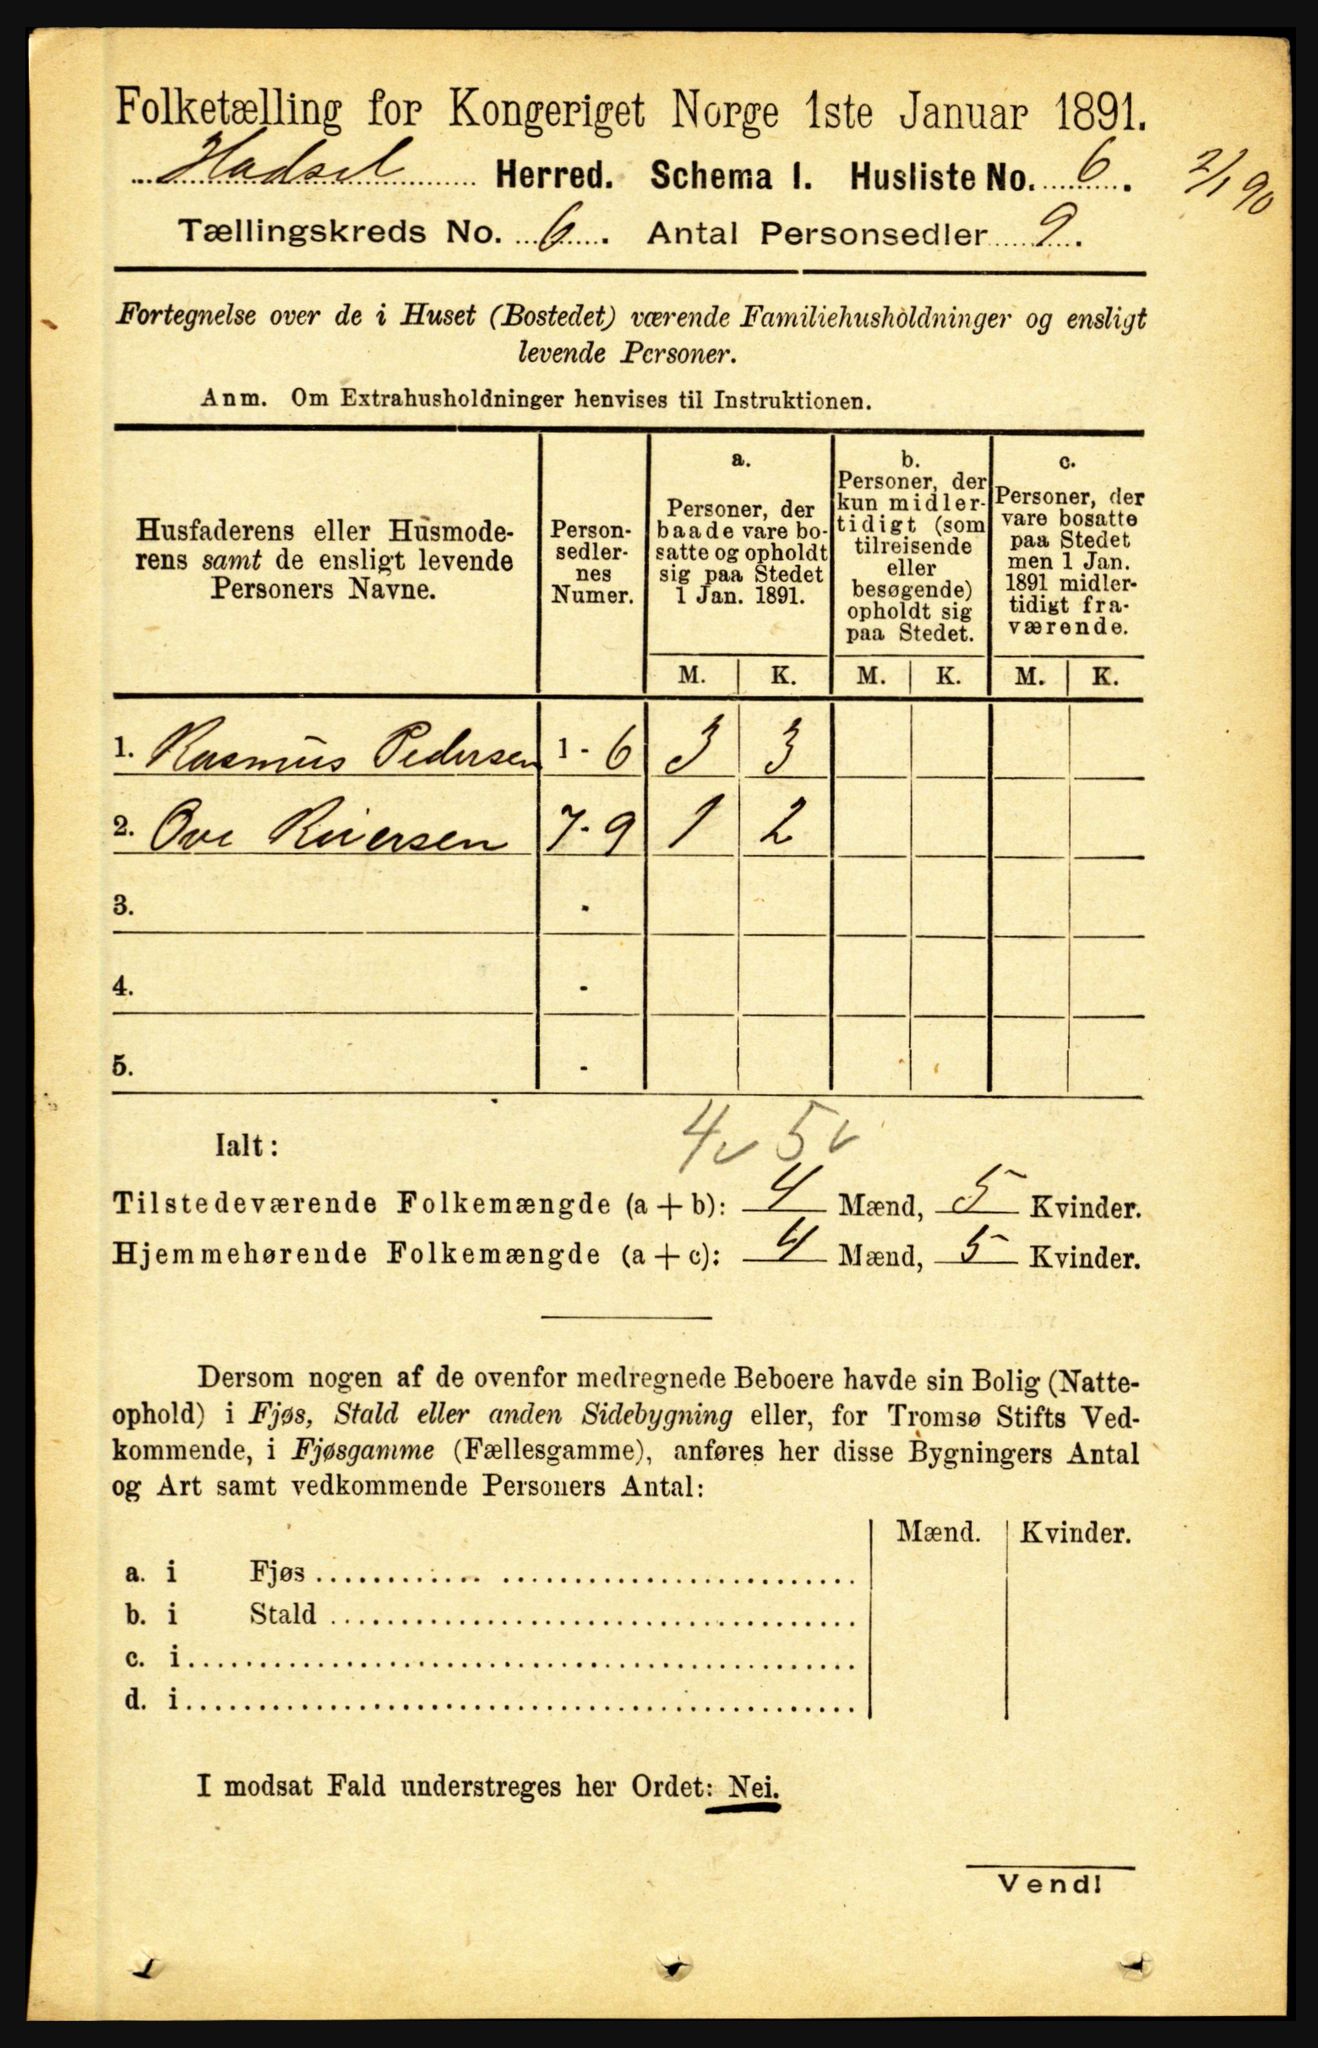 Folketælling for Kongeriget Norge 1ste Januar 1891.
Hadsel Herred. Schema 1. Husliste No. 6. 2/1 90
Tællingskreds No. 6. Antal Personsedler 9.
Fortegnelse over de i Huset (Bostedet) værende Familiehusholdninger og ensligt
levende Personer.
Anm. Om Extrahusholdninger henvises til Instruktionen.
Husfaderens eller Husmode-
rens samt de ensligt levende
Personers Navne.
Person-
sedler-
nes
Numer.
a.
Personer, der
baade vare bo-
satte og opholdt
sig paa Stedet
1 Jan. 1891.
b.
Personer, der
kun midler-
tidigt (som
tilreisende
eller
besøgende)
opholdt sig
paa Stedet.
c.
Personer, der
vare bosatte
paa Stedet
men 1 Jan.
1891 midler-
tidigt fra-
værende.
M. K. M. K. M. K.
1. Rasmus Pedersen 1 - 6 3 3
2. Ove Riversen 7 - 9 1 2
3. -
4. -
5. -
4 5
Ialt:
Tilstedeværende Folkemængde (a + b): 4 Mænd, 5 Kvinder.
Hjemmehørende Folkemængde (a + c): 4 Mænd, 5 Kvinder.
Dersom nogen af de ovenfor medregnede Beboere havde sin Bolig (Natte-
ophold) i Fjøs, Stald eller anden Sidebygning eller, for Tromsø Stifts Ved-
kommende, i Fjøsgamme (Fællesgamme), anføres her disse Bygningers Antal
og Art samt vedkommende Personers Antal:
Mænd. Kvinder.
a. i Fjøs
b. i Stald
c. i
d. i
I modsat Fald understreges her Ordet: Nei.
Vend!